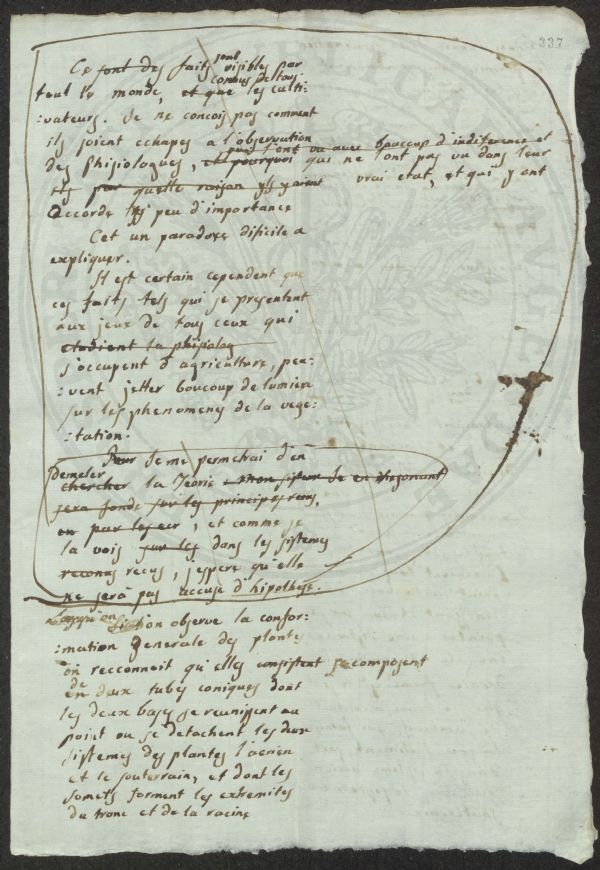 337
Ce sont des faits sont visibles par
tout le monde, et que connus de tous les culti:
:vateurs. Je ne concois pas comment
ils soient echapes a l'observation
des Phisiologues, et pourquoi vu avec boucoup d'indiference et
qui ne l'ont pas vu dans leur
par quelle raison vrai etat, et qui y ont
accorde si peu d'importance
Cet un paradoxe dificile a
expliquer.
Il est certain cependent que
ces faits tels qui se presentent
aux jeux de tous ceux qui
etudient la phisiolog
s'occupent d'agriculture, peu:
:vent jetter boucoup de lumiere
sur les phenomenes de la vege:
:tation.
Pour Je me permetrai d'en
Demeler
chercher la Teorie
sera fonde sur les principes
et comme je
la vois sur les dans les sistemes
reconus recus, j'espere qu'elle
ne sera pas accuse d'hipothese.
Lorsqu'on Si on observe la confor:
:mation generale des plantes
on recconnoit qu'elles consistent se composent
de
en deux tubes coniques dont
les deux bases se reunissent au
point ou se detachent les deux
sistemes des plantes l'aerien
et le souterrain, et dont les
somets forment les extremites
du tronc et de la racine